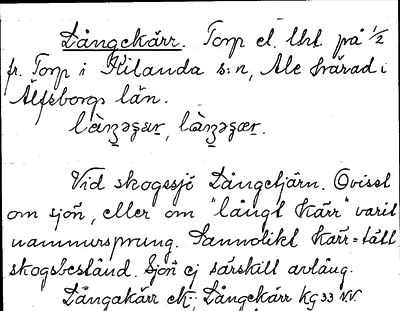 Långekärr. Torp el. lht på 1/2
fr. Torp i Kilanda s:n, Ale härad i
Älfsborgs län.
Vid skogssjö Långetjärn. Ovisst
om sjön, eller om "långt kärr" varit
namnursprung. Sannolikt Kärr = tätt
skogsbestånd. Sjön ej särskilt avlång.
Långakärr ek.; Långekärr Kg 33 NV.